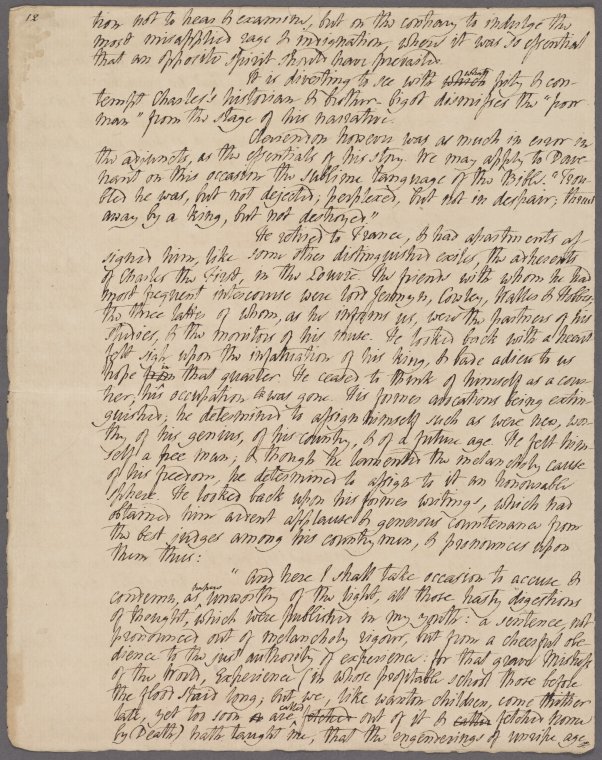 12
tion not to hear & examine, but on the contrary to indulge the
most misapplied rage & indignation, where it was so essential
that an opposite spirit should have prevailed.
It is diverting to see with which what pity & con-
tempt Charles's historian & brother-bigot dismisses the "poor
man" from the stage of his narrative.
Clarendon however was as much in error in
the adjuncts, as the essentials of his story. We may apply to Dave-
nant on this occasion the sublime language of the Bible. "Trou-
bled he was, but not dejected; perplexed, but not in despair; thrust
away by a king, but not destroyed"
He retired to France, & had apartments as-
signed him, like some other distinguished exiles, the adherents
of Charles the First, in the Louvre. The friends with whom he had
most frequent intercourse were lord Jermyn, Cowley, Waller & Hobbes,
the three latter of whom, as he informs us, were the partners of his
studies, & the monitors of his muse. He looked back with a heart
felt sigh upon the infatuation of his king, & bade adieu to us
hope from that quarter. He ceased to think of himself as a cour-
tier, his occupation was gone. His former avocations being extin-
guished, he determined to assign himself such as were new, wor-
thy, of his genius, of his country, & of a future age. He felt him-
self a free man; & though he lamented the melancholy cause
of his freedom, he determined to assign to it an honourable
sphere. He looked back upon his former writings, which had
obtained him ardent applause & generous countenance from
the best judges among his countrymen, & pronounces upon
them thus:
"And here I shall take occasion to accuse &
condemn, as papers unworthy of the light, all those hasty digestions
of thought, which were published in my youth: a sentence, not
pronounced out of melancholy rigour, but from a cheerful obe-
dience to the just authority of experience: for that grave Mistress
of the World, Experience (in whose profitable school those before
the flood staid long; but we, like wanton children, come thither
late, yet too soon are called fetched out of it & fetched home
by Death) hath taught me, that the engenderings of unripe age